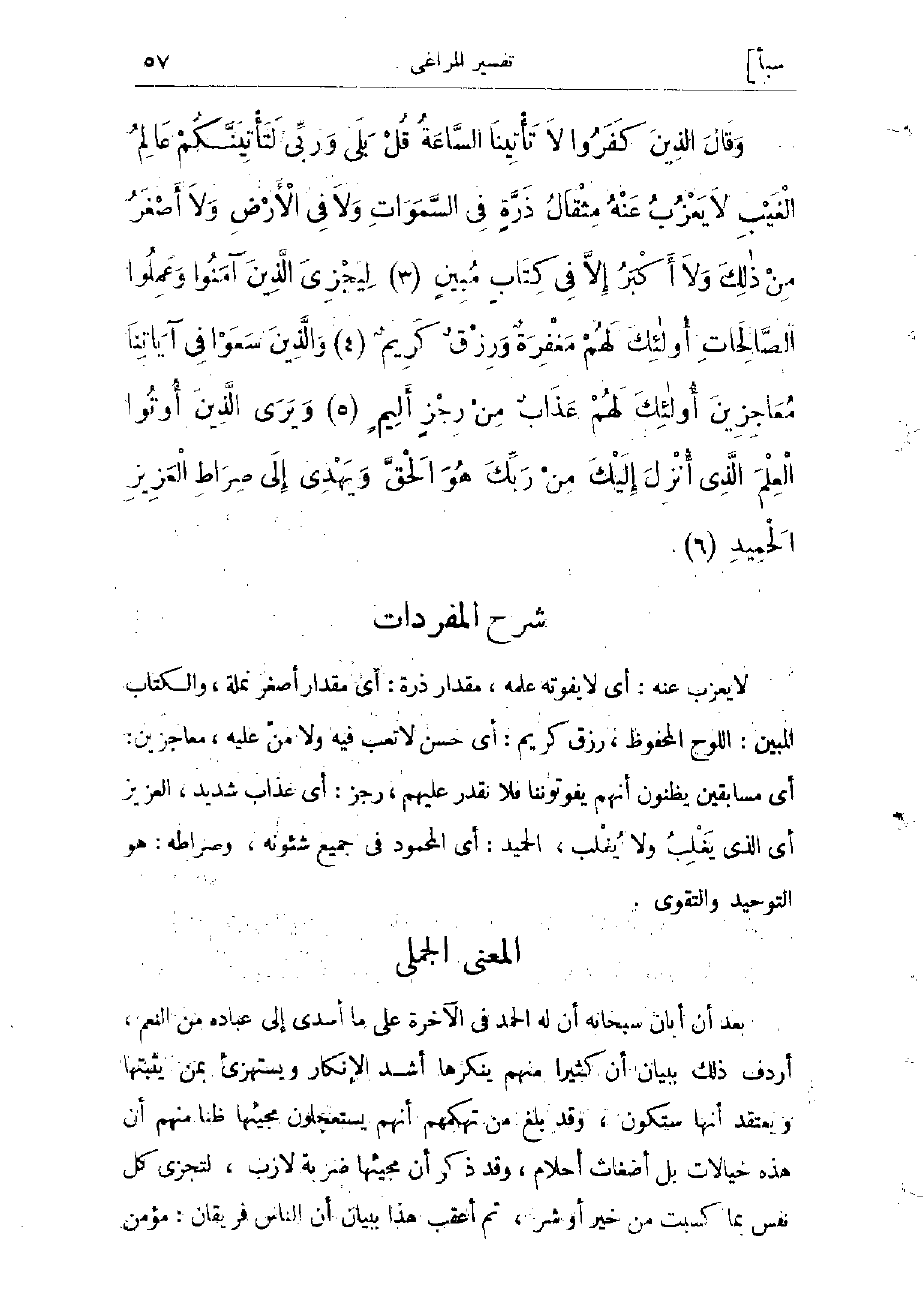 سبأ]
تفسير المراغى
٥٧
وَقَالَ الَّذِينَ كَفَرُوا لاَ تَأْتِينَا السَّاعَةُ قُلْ بَلَى وَرَبِّى لَتَأْتِيَنَّكُمْ عَالِمُ
الْغَيْبِ لاَ يَعْزُبُ عَنْهُ مِثْقَالُ ذَرَّةٍ فِى السَّمَوَاتِ وَلاَ فِى الْأَرْضِ وَلاَ أَصْغَرُ
مِنْ ذٰلِكَ وَلاَ أَكْبَرُ إِلاَّ فِى كِتَابٍ مُبِينٍ (٣) لِيَجْزِىَ الَّذِينَ آمَنُوا وَعَمِلُوا
الصَّالِحَاتِ أُولٰئِكَ لَهُمْ مَغْفِرَةٌ وَرِزْقٌ كَرِيمٌ (٤) وَالَّذِينَ سَعَوْا فِى آيَاتِنَا
مُعَاجِزِينَ أُولٰئِكَ لَهُمْ عَذَابٌ مِنْ رِجْزٍ أَلِيمٍ (٥) وَيَرَى الَّذِينَ أُوتُوا
الْعِلْمَ الَّذِى أُنْزِلَ إِلَيْكَ مِنْ رَبِّكَ هُوَ الْحَقَّ وَيَهْدِى إِلَى صِرَاطِ الْعَزِيزِ
الْحَمِيدِ (٦) .
شرح المفردات
لا يعزب عنه : أى لا يفوته علمه ، مقدار ذرة : أى مقدار أصغر نملة ، والكتاب
المبين : اللوح المحفوظ ، رزق كريم : أى حسن لا تعب فيه ولا منّ عليه ، معاجزين :
أى مسابقين يظنون أنهم يفوتوننا فلا نقدر عليهم ، رجز : أى عذاب شديد ، العزيز
أى الذى يَغْلِبُ ولا يُغْلب ، الحميد : أى المحمود فى جميع شئونه ، وصراطه : هو
التوحيد والتقوى .
المعنى الجملى
بعد أن أبان سبحانه أن له الحمد فى الآخرة على ما أسدى إلى عباده من النعم ،
أردف ذلك ببيان أن كثيرا منهم ينكرها أشد الإنكار ويستهزئ بمن يثبتها
ويعتقد أنها ستكون ، وقد بلغ من تهكمهم أنهم يستعجلون مجيئها ظنا منهم أن
هذه خيالات بل أضغاث أحلام ، وقد ذكر أن مجيئها ضربة لازب ، لتجزى كل
نفس بما كسبت من خير أو شر ، ثم أعقب هذا ببيان أن الناس فريقان : مؤمن